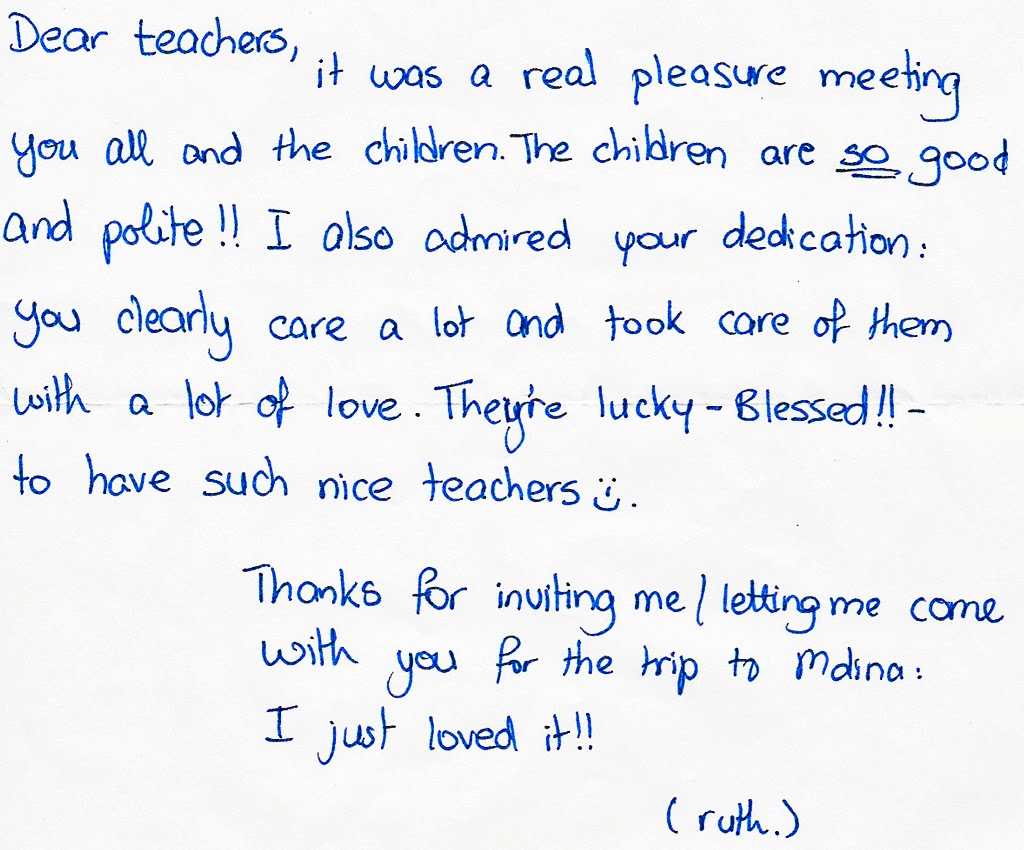 Dear teachers,
it was a real pleasure meeting
you all and the children. The children are so good
and polite!! I also admired your dedication:
you clearly care a lot and took care of them
with a lot of love. They're lucky - Blessed!! -
to have such nice teachers :).
Thanks for inviting me / letting me come
with you for the trip to Mdina:
I just loved it!!
(ruth.)